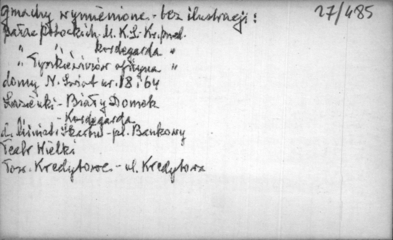 gmachy wymienione - bez ilustracji: 27/485
pałac Potockich - ul. K.L. - Kr. Przed.
" " kordegarda "
" Tyszkiewiczów oficyna "
domy N. Świat nr. 18 i 64
Łazienki - Biały Domek
- Kordegarda
d. Minist. Skarbu - pl. Bankowy
Teatr Wielki
Tow. Kredytowe - ul. Kredytowa